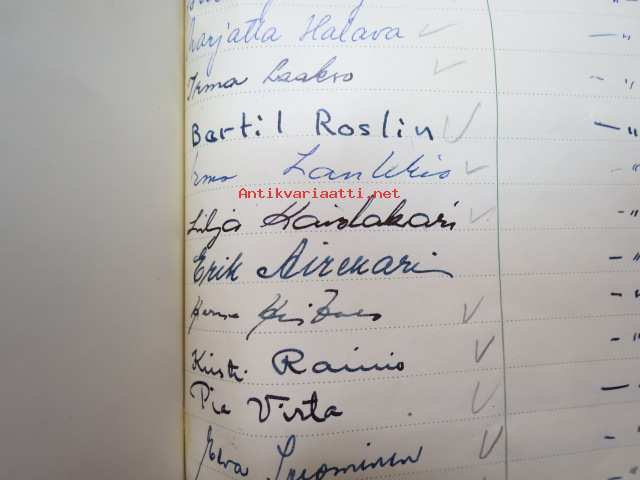 Marjatta Halava ✓ — "
Irma Laakso ✓ - "
Bertil Roslin ✓ — "
Irma Lankkio ✓ - "
Antikvariaatti.net
Lilja Kaislakari ✓ - "
Erik Airekari - "
✓ - "
Kirsti Rainio ✓ - "
Pia Virta ✓ — "
Elva Suominen ✓ - "